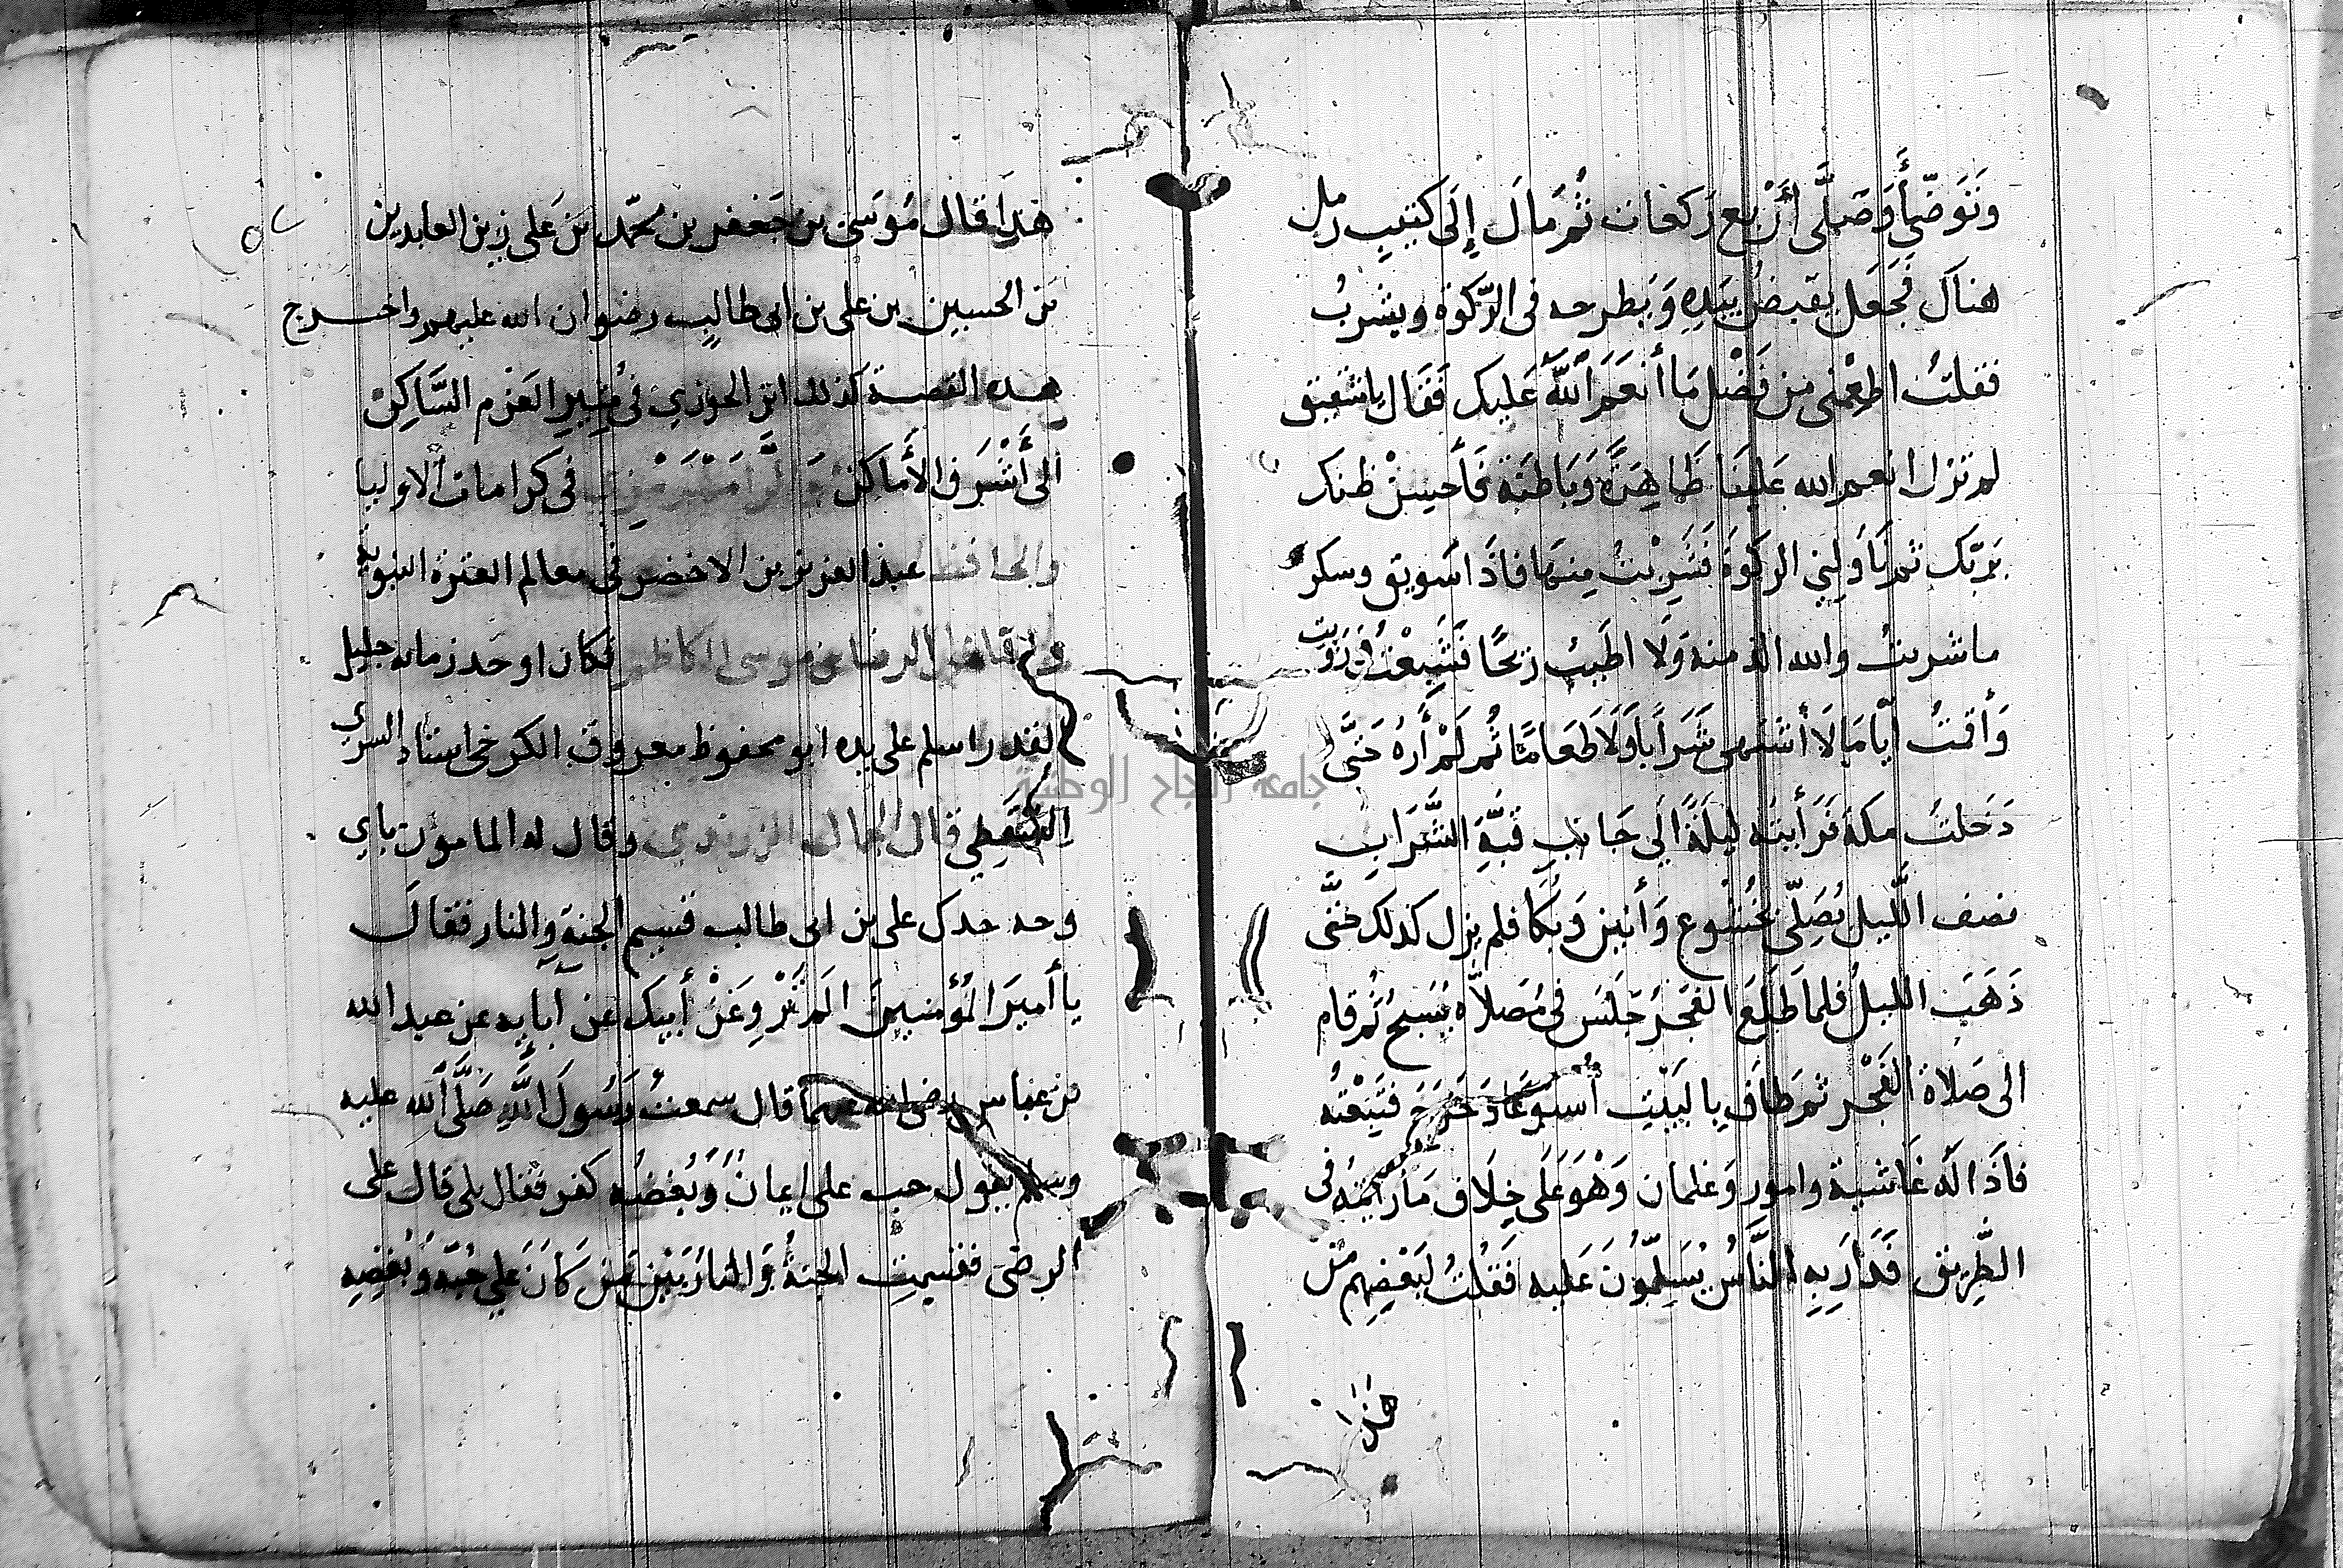 وَتَوَضّأَ وَصَلَّى أَرْبَع رَكعَات ثُمَّ مَالَ إِلَى كثيبِ رمل
هناكَ فَجَعَل يقبضُ بيَدِهِ وَيَطرحه فى الرّكوة ويشربُ
فقلتُ اطعِمْنى من فَضْل مَا أَنعَمَ اَللَّهُ عَليك فَقَال يا شقيق
لم تزل انعم الله عَلينَا ظَاهِرَةً وَبَاطنَة فَأحسِنْ ظنك
برَبّك ثم نَاوَلِنِي الركوَة فَشَرِبْتُ مِنهَا فاذَا سَويق وسكر
ما شربتُ والله الذ منه وَلَا اطيَب رِيْحًا فَشَبِعْتُ وَرَوَيت
وَأقمتُ أيّامَا لَا أشتهى شَرَابًا وَلَا طَعَامًا ثُم لَمْ أَرَهُ حَتَّى
دَخلتُ مكة فَرَأيتُه ليلَةً الَي جَانب قبَّةِ الشَّرَابِ
نصف اللّيل يُصَلّى بخُشُوع وَأنين وَبُكَا فلم يزل كذلك حَتَّى
ذَهَبَ الليلُ فلما طَلَعَ الفَجْرُ جَلسَ فى مُصَلاّه يُسَبحُ ثُم قام
الى صَلاة الفَجْر ثم طَافَ بِالبَيْت أُسبوعًا وَخَرَجَ فتَبِعْتُه
فاذَا لَه غَاشية وامور وَغلمان وَهُوَ عَلَى خِلَاف مَا رَأيتُه فى
الطَّرِيق فَدَارَ بِهِ النَّاسُ يُسَلِّمُونَ عَليه فَقُلتُ لبَعضِهِم مَن
هَذا
هَذا قَال مُوسَى بن جَعْفر بن محمّد بن عَلى زين العابدين
بن الحسين بن على بن ابى طالبٍ رضوان الله عليهم واخرج
هذه القصة كذلك ابن الجوزي فى مُثِيرِ العَزْم السَّاكِنْ
الى أَشْرَف الأَمَاكن فى كرامات الاوليا
والحافظ عبد العزيز بن الاخضر فى معالم العترة النبوية
على الرضا بن موسى الكاظم فكان اوحد زمانه جليل
القدر اسلم على يده ابو محفوظ معروف الكرخى استاذ السري
السَّقَطِي قال الجمال الزرندي وقال له المامون باي
وجه جدك على بن ابى طالب قسيم الجنةِ والنار فقالَ
يا أميرَ المُؤمنينَ الم تَرْوِ عَنْ أبيك عَن ابايه عن عبد الله
بن عباس رضى الله عنهما قال سمعتُ رَسُولَ اَللَّهِ صَلَّى اَللَّهُ عليه
وسلم يقول حب على ايمانٌ وَبُغضُه كفر فقال بلى قال على
الرضى فقسمت الجنةُ وَالنارَ بَيْن مَن كَانَ عَلي حُبّه وَبُغضِهِ
جامعة النجاح الوطنية